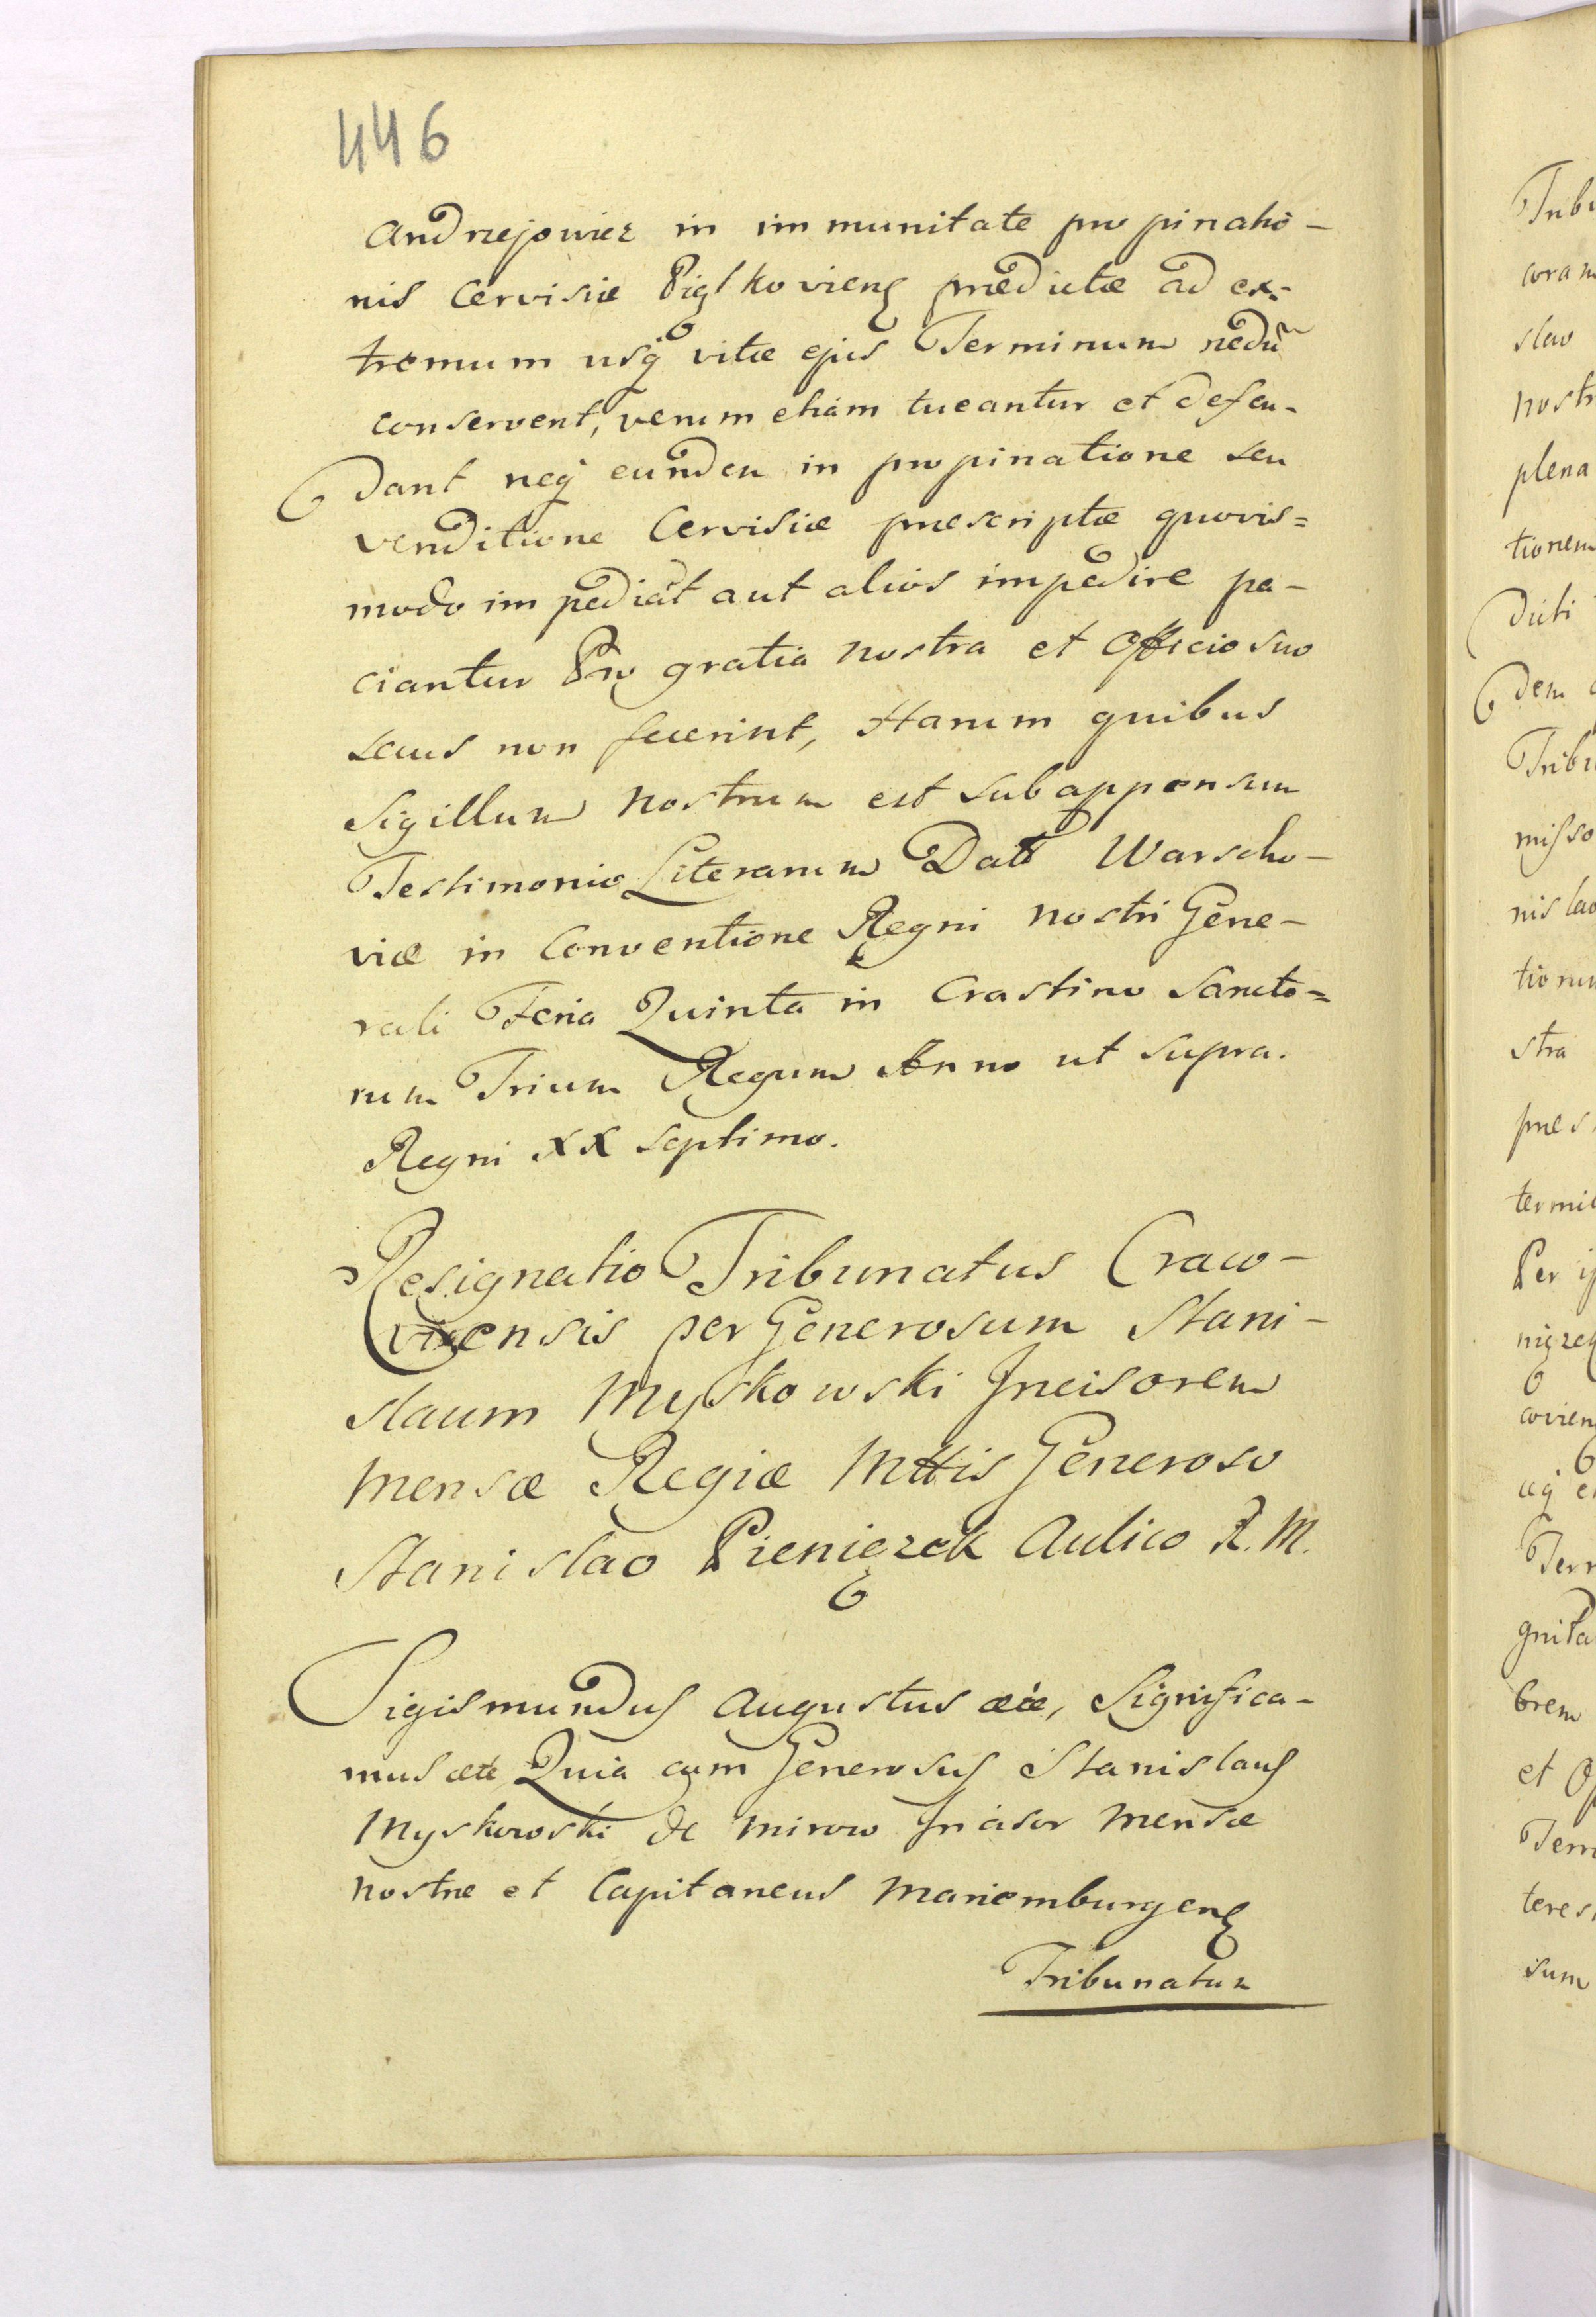 446
Andrzejowicz in immunitate propinatio-
nis Cervisiæ Piątkovienς prædictæ ad ex-
tremum usq vitæ ejus Terminum nedũ
conservent, verum etiam tueantur et defen-
dant neq eundem in propinatione seu
venditione Cervisiæ præscriptæ quovis=
modo impediãt aut alios impedire pa-
ciantur Pro gratia nostra et Officio suo
secus non fecerint, Harum quibus
Sigillum nostrum est subappensum
Testimonio Literarum Datt Warscho-
viæ in Conventione Regni nostri Gene-
rali Feria Quinta in Crastino Sancto=
rum Trium Regum Anno ut supra.
Regni XX septimo.
Resignatio Tribunatus Craco-
viensis per Generosum Stani-
slaum Myskowski Incisorem
Mensæ Regiæ Mttis Generoso
Stanislao Pienięzek Aulico R. M.
Sigismundus Augustus etc, Significa-
mus etc Quia cum Generosus Stanislaus
Myskowski de Mirow Incisor Mensæ
nostræ et Capitaneus Mariemburgenς
Tribunatum
coram
slao
plena
tionem
dicti
stra
et
sum